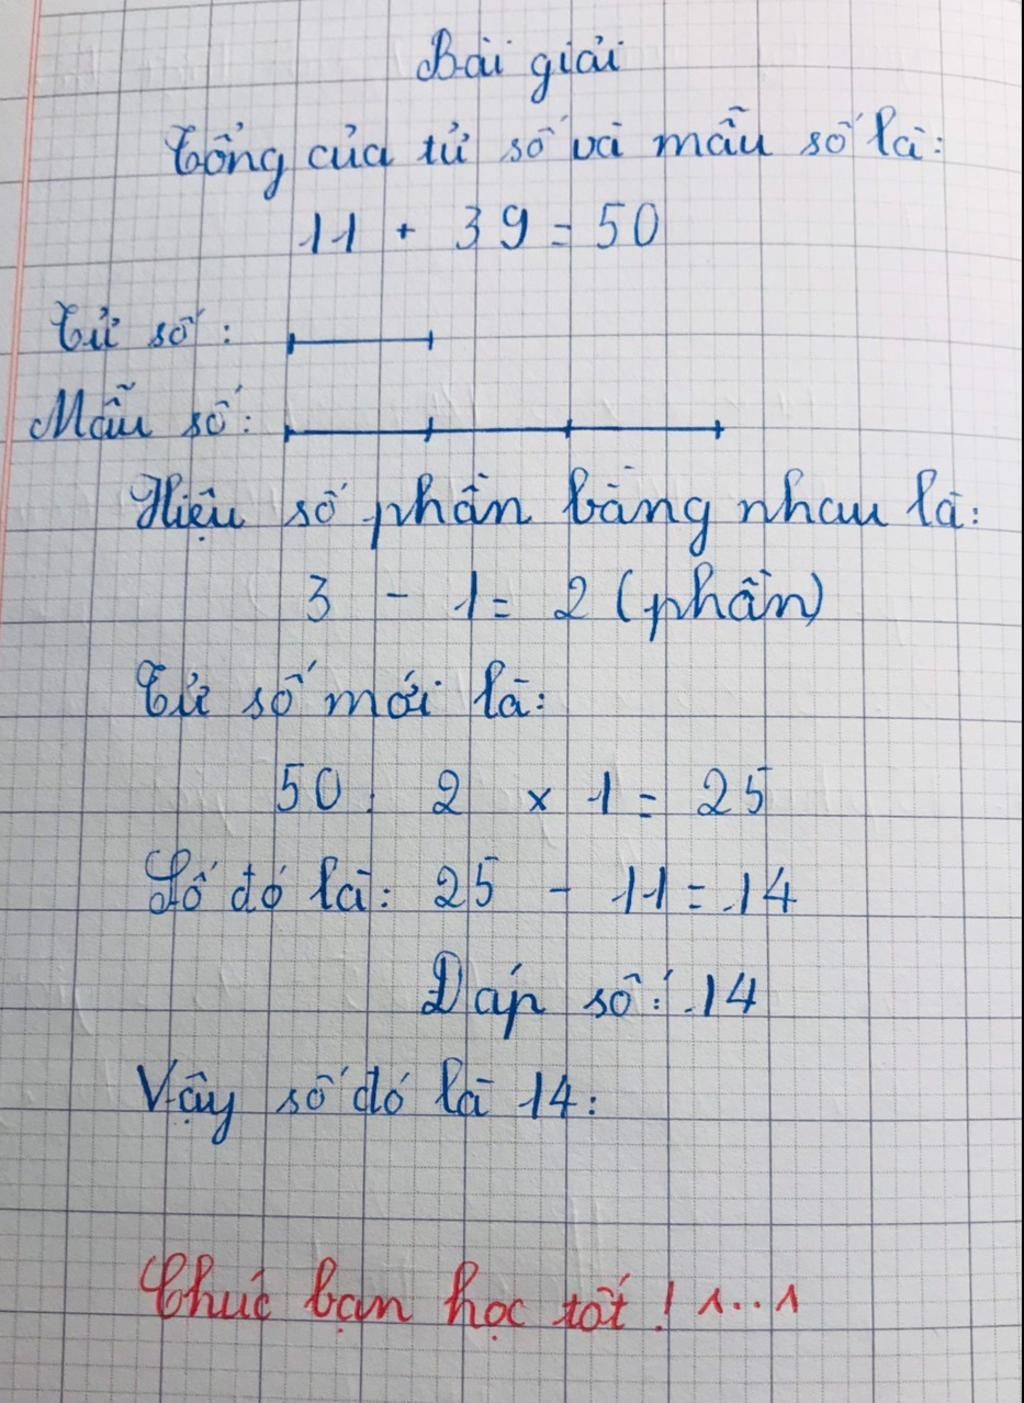 Bài giải
Tổng của tử số và mẫu số là:
11 + 39 = 50
Tử số:
Mẫu số:
Hiệu số phần bằng nhau là:
3 - 1 = 2 (phần)
Tử số mới là:
50 : 2 x 1 = 25
Số đó là: 25 - 11 = 14
Đáp số: 14
Vậy số đó là 14:
Chúc bạn học tốt! ^..^